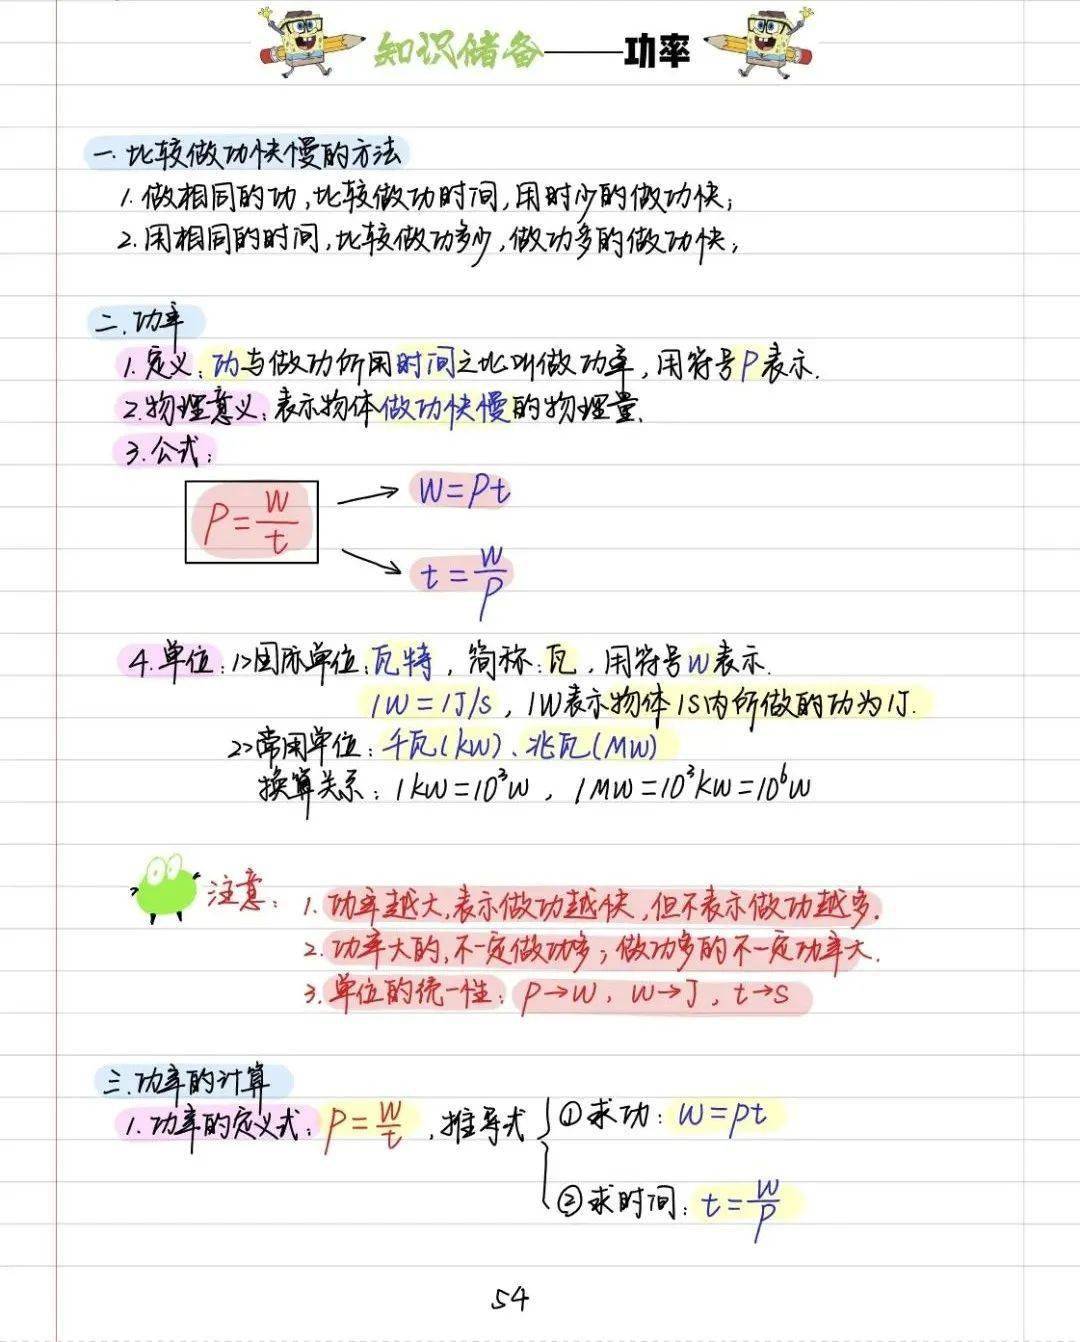 知识储备——功率
一.比较做功快慢的方法
1.做相同的功,比较做功时间,用时少的做功快;
2.用相同的时间,比较做功多少,做功多的做功快;
二.功率
1.定义:功与做功所用时间之比叫做功率,用符号P表示.
2.物理意义:表示物体做功快慢的物理量.
3.公式:
P=W/t
W=Pt
t=W/P
4.单位:1>国际单位:瓦特,简称:瓦,用符号W表示.
1W=1J/s,1W表示物体1S内所做的功为1J.
2>常用单位:千瓦(kW)、兆瓦(MW)
换算关系:1kW=10³W,1MW=10³KW=10⁶W
注意:1.功率越大,表示做功越快,但不表示做功越多.
2.功率大的,不一定做功多;做功多的不一定功率大.
3.单位的统一性:P→W,W→J,t→S
三.功率的计算
1.功率的定义式:P=W/t,推导式
①求功:W=Pt
②求时间:t=W/P
54